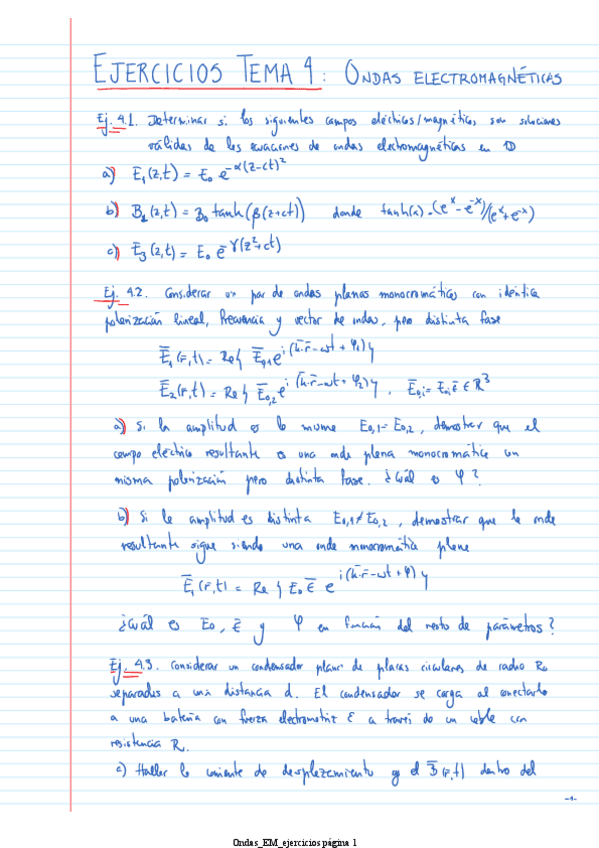 EJERCICIOS TEMA 4: ONDAS ELECTROMAGNÉTICAS
Ej. 4.1. Determinar si los siguientes campos eléctricos/magnéticos son soluciones
válidas de las ecuaciones de ondas electromagnéticas en 1D
a) E₁(z,t) = E₀ e^{-α(z-ct)²}
b) B₂(z,t) = B₀ tanh(β(z+ct)) donde tanh(x) = (eˣ-e⁻ˣ)/(eˣ+e⁻ˣ)
c) E₃(z,t) = E₀ e^{-γ(z²+ct)}
Ej. 4.2. Considerar un par de ondas planas monocromáticas con idéntica
polarización lineal, frecuencia y vector de ondas, pero distinta fase
E̅₁(r,t) = Re{ E̅₀,₁ e^{i(k̅·r̅-ωt+φ₁)} }
E̅₂(r,t) = Re{ E̅₀,₂ e^{i(k̅·r̅-ωt+φ₂)} }, E̅₀,ᵢ = E₀,ᵢ ε̅ ∈ R³
a) Si la amplitud es la misma E₀,₁ = E₀,₂, demostrar que el
campo eléctrico resultante es una onda plana monocromática con
misma polarización pero distinta fase. ¿Cuál es φ?
b) Si la amplitud es distinta E₀,₁ ≠ E₀,₂, demostrar que la onda
resultante sigue siendo una onda monocromática plana
E̅₁(r,t) = Re { E₀ ε̅ e^{i(k̅·r̅-ωt+φ)} }
¿Cuál es E₀, ε̅ y φ en función del resto de parámetros?
Ej. 4.3. Considerar un condensador plano de placas circulares de radio R₀
separadas a una distancia d. El condensador se carga al conectarlo
a una batería con fuerza electromotriz ε a través de un cable con
resistencia R.
a) Hallar la corriente de desplazamiento y el B̅(r,t) dentro del
-1-
Ondas_EM_ejercicios página 1